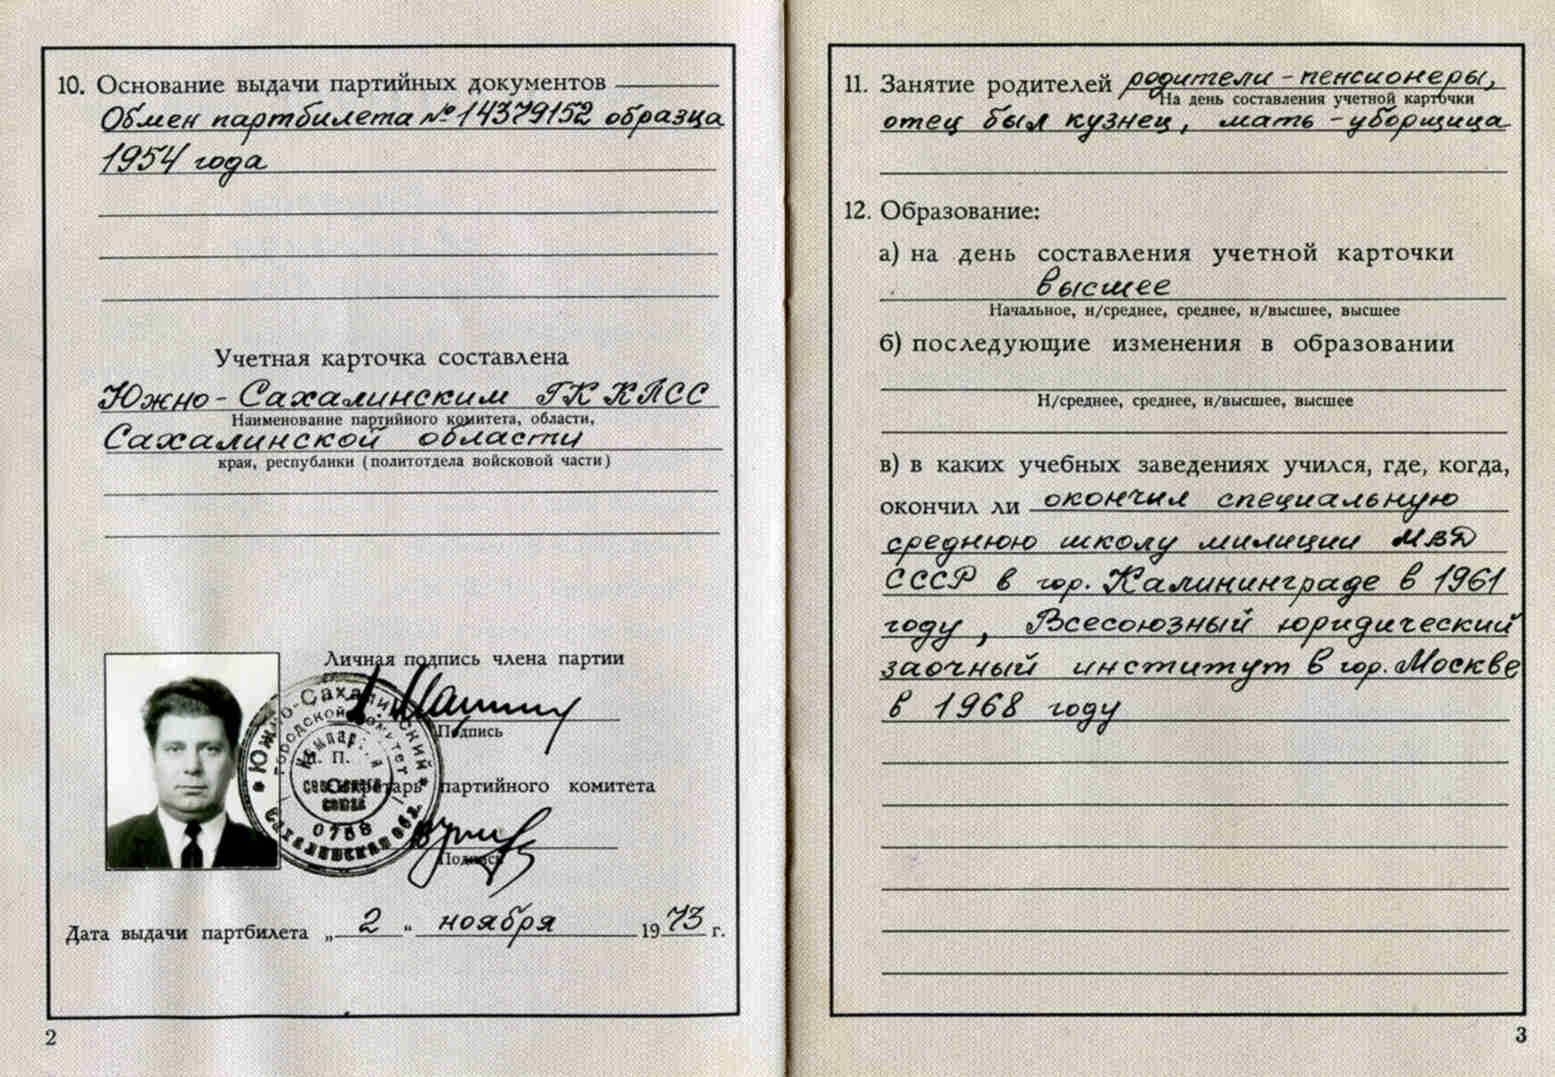 10. Основание выдачи партийных документов
Обмен партбилета № 14379152 образца
1954 года
Учетная карточка составлена
Южно-Сахалинским ГК КПСС
Наименование партийного комитета, области,
Сахалинской области
края, республики (политотдела войсковой части)
Личная подпись члена партии
Подпись
М. П.
Южно-Сахалинский
городской комитет
0788
Сахалинская обл.
Секретарь партийного комитета
Подпись
Дата выдачи партбилета „ 2 “ ноября 1973 г.
2
11. Занятие родителей родители - пенсионеры,
На день составления учетной карточки
отец был кузнец, мать - уборщица
12. Образование:
а) на день составления учетной карточки
высшее
Начальное, н/среднее, среднее, н/высшее, высшее
б) последующие изменения в образовании
Н/среднее, среднее, н/высшее, высшее
в) в каких учебных заведениях учился, где, когда,
окончил ли окончил специальную
среднюю школу милиции МВД
СССР в гор. Калининграде в 1961
году, Всесоюзный юридический
заочный институт в гор. Москве
в 1968 году
3